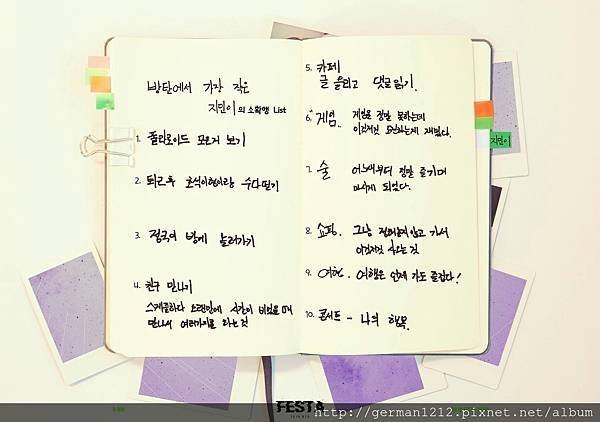 방탄에서 가장 작은
지민이의 소확행 List
1. 폴라로이드 모은거 보기
2. 퇴근후 호석이형이랑 수다떨기
3. 정국이 방에 놀러가기
4. 친구 만나기
스케줄하다 오랜만에 시간이 비었을 때
만나서 여러가지를 하는 것
5. 카페
글 올리고 댓글 읽기.
6. 게임. 게임을 정말 못하는데
이것저것 도전하는게 재밌다.
7. 술 어느새부터 정말 즐기며
마시게 되었다.
8. 쇼핑. 그냥 정해놓지 않고 가서
이것저것 사오는 것
9. 여행. 여행은 언제 가도 즐겁다!
10. 콘서트 - 나의 행복.
지민이
FESTA
http://german1212.pixnet.net/album